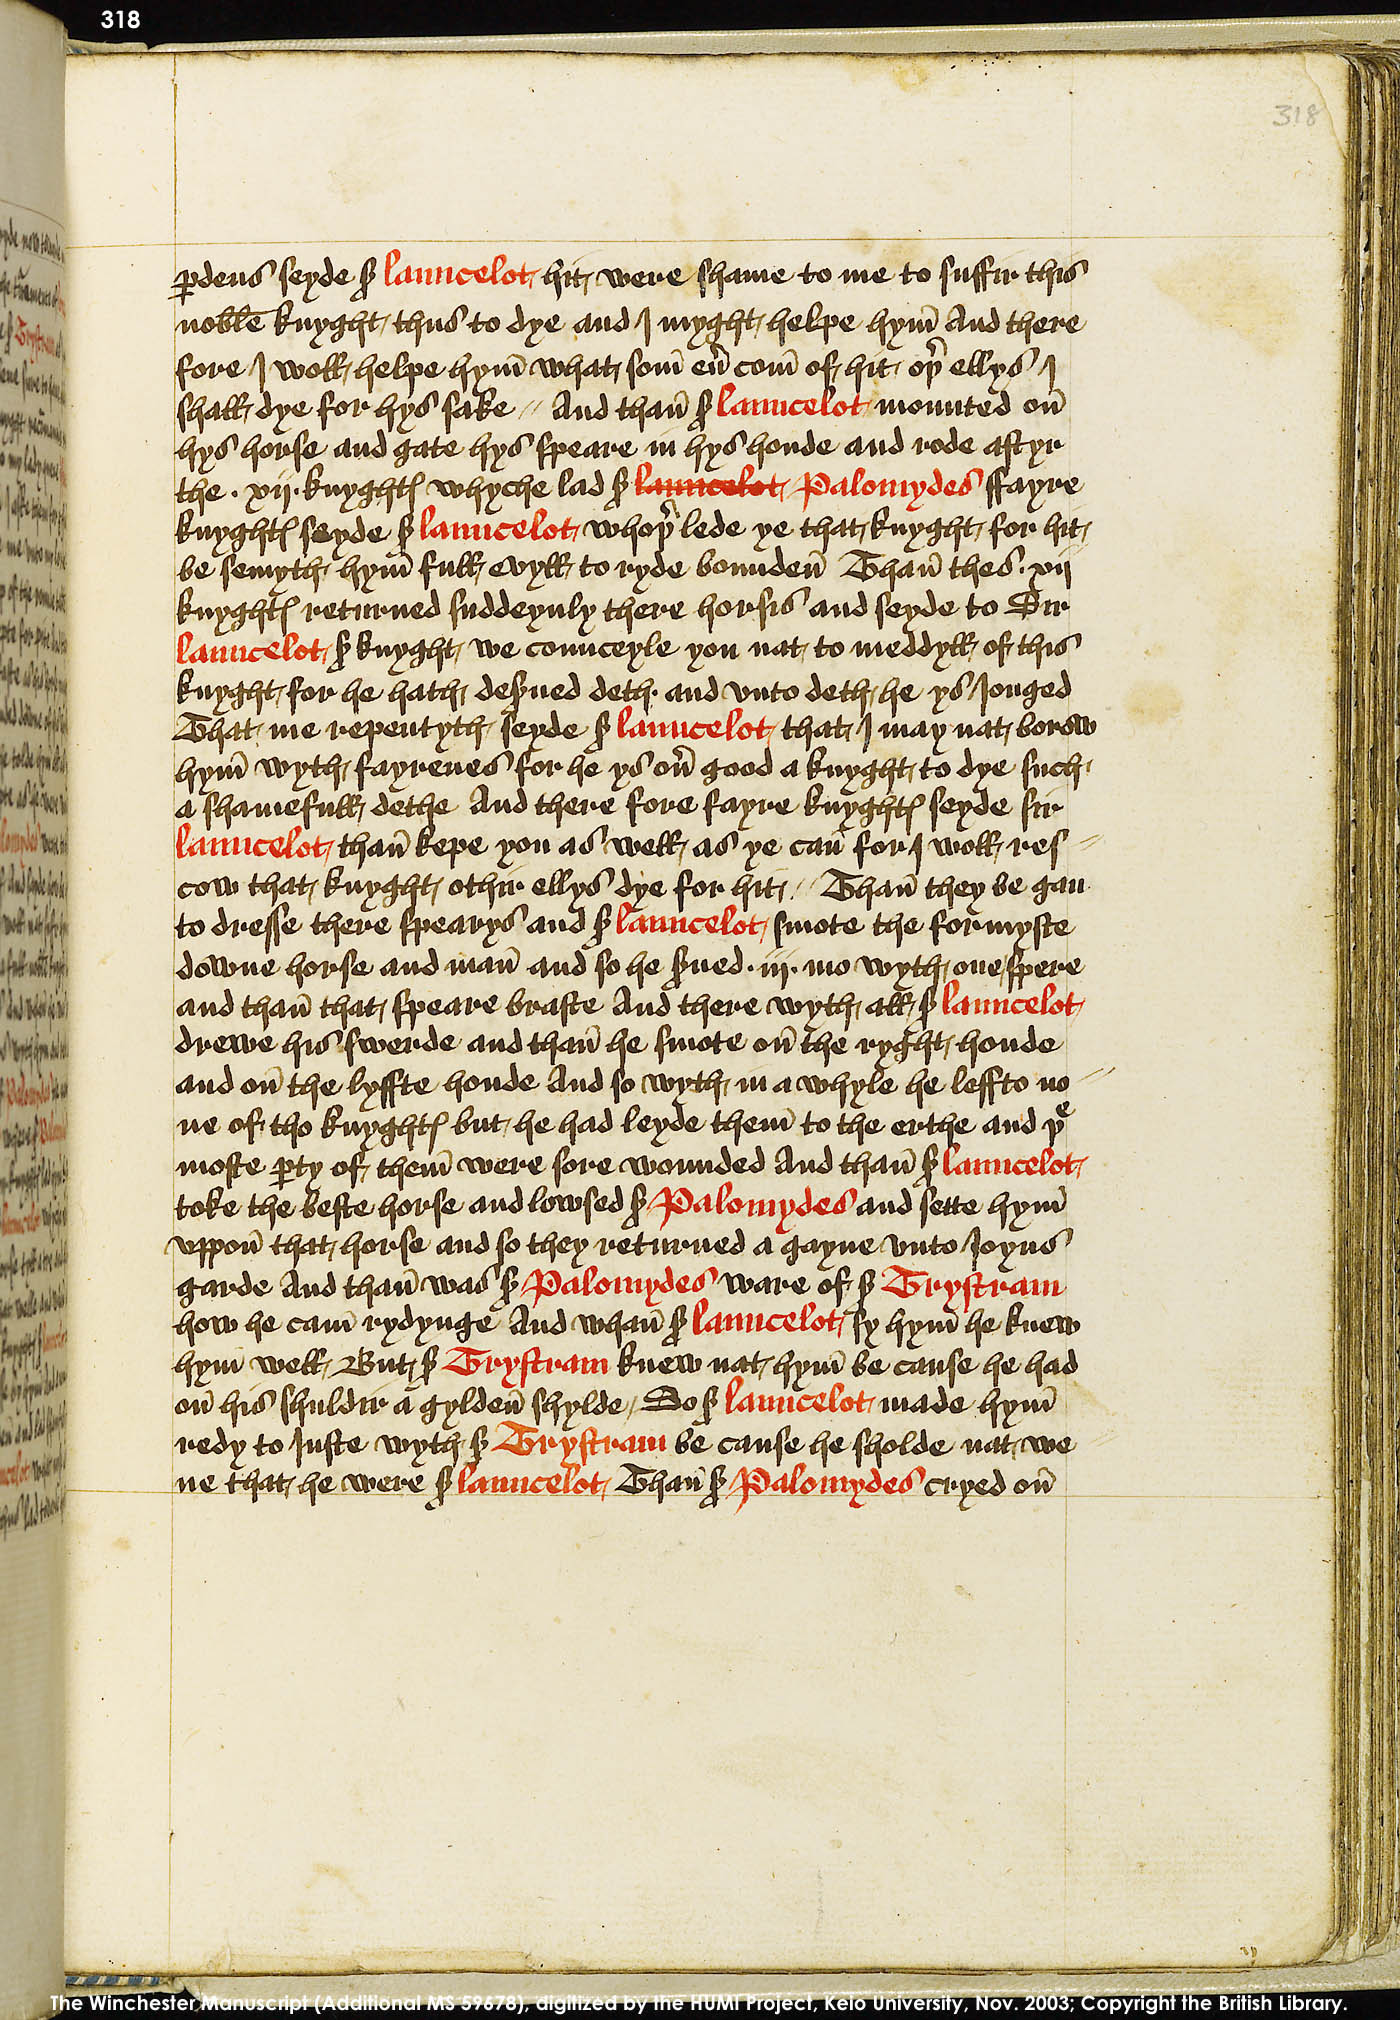 318
318
ꝑdeus seyde ẜ launcelot hit were shame to me to suffir this
noble knyght thus to dye and I myght helpe hym̄ And there
fore I woll helpe hym̄ what som̄ eu̾ com̄ of hit oþ̾ ellys I
shall dye for hys sake // And than̄ ẜ launcelot mounted on̄
hys horse and gate hys speare in hys honde and rode aftyr
the · xij · knyghtꝭ whyche lad ẜ launcelot Palomydes ffayre
knyghtꝭ seyde ẜ launcelot whoþ̾ lede ye that knyght for hit
be semyth hym̄ full evyll to ryde bounden̄ Than̄ thes · xij
knyghtꝭ returned suddeynly there horsis and seyde to Sir
launcelot ẜ knyght we counceyle you nat to meddyll of this
knyght for he hath deẜued deth · and vnto deth he ys Jouged
That me repentyth seyde ẜ launcelot that I may nat borow
hym̄ wyth fayrenes for he ys ou̾ good a knyght to dye such
a shamefull dethe And there fore fayre knyghtꝭ seyde sir
launcelot than̄ kepe you as well as ye can̄ for I woll res //
cow that knyght othir ellys dye for hit // Than̄ they be gan
to dresse there spearys and ẜ launcelot smote the formyste
downe horse and man̄ and so he ẜued · iij · mo wyth one spere
and than̄ that speare braste And there wyth all ẜ launcelot
drewe his swerde and than̄ he smote on̄ the ryght honde
and on̄ the lyffte honde And so wyth in a whyle he leffto no //
ne of tho knyghtꝭ but he had leyde them̄ to the erthe and þͤ
moste ꝑty of them̄ were sore wounded And than̄ ẜ launcelot
toke the beste horse and lowsed ẜ Palomydes and sette hym̄
vppon̄ that horse and so they returned a gayne vnto Joyus
garde And than̄ was ẜ Palomydes ware of ẜ Trystram
how he cam̄ rydynge And whan̄ ẜ launcelot sy hym̄ he knew
hym̄ well But ẜ Trystram knew nat hym̄ be cause he had
on̄ his shuldir a gylden̄ shylde / So ẜ launcelot made hym̄
redy to Juste wyth ẜ Trystram be cause he sholde nat we //
ne that he were ẜ launcelot Than̄ ẜ Palomydes cryed on̄
The Winchester Manuscript (Additional MS 59678), digitized by the HUMI Project, Keio University, Nov. 2003; Copyright the British Library.